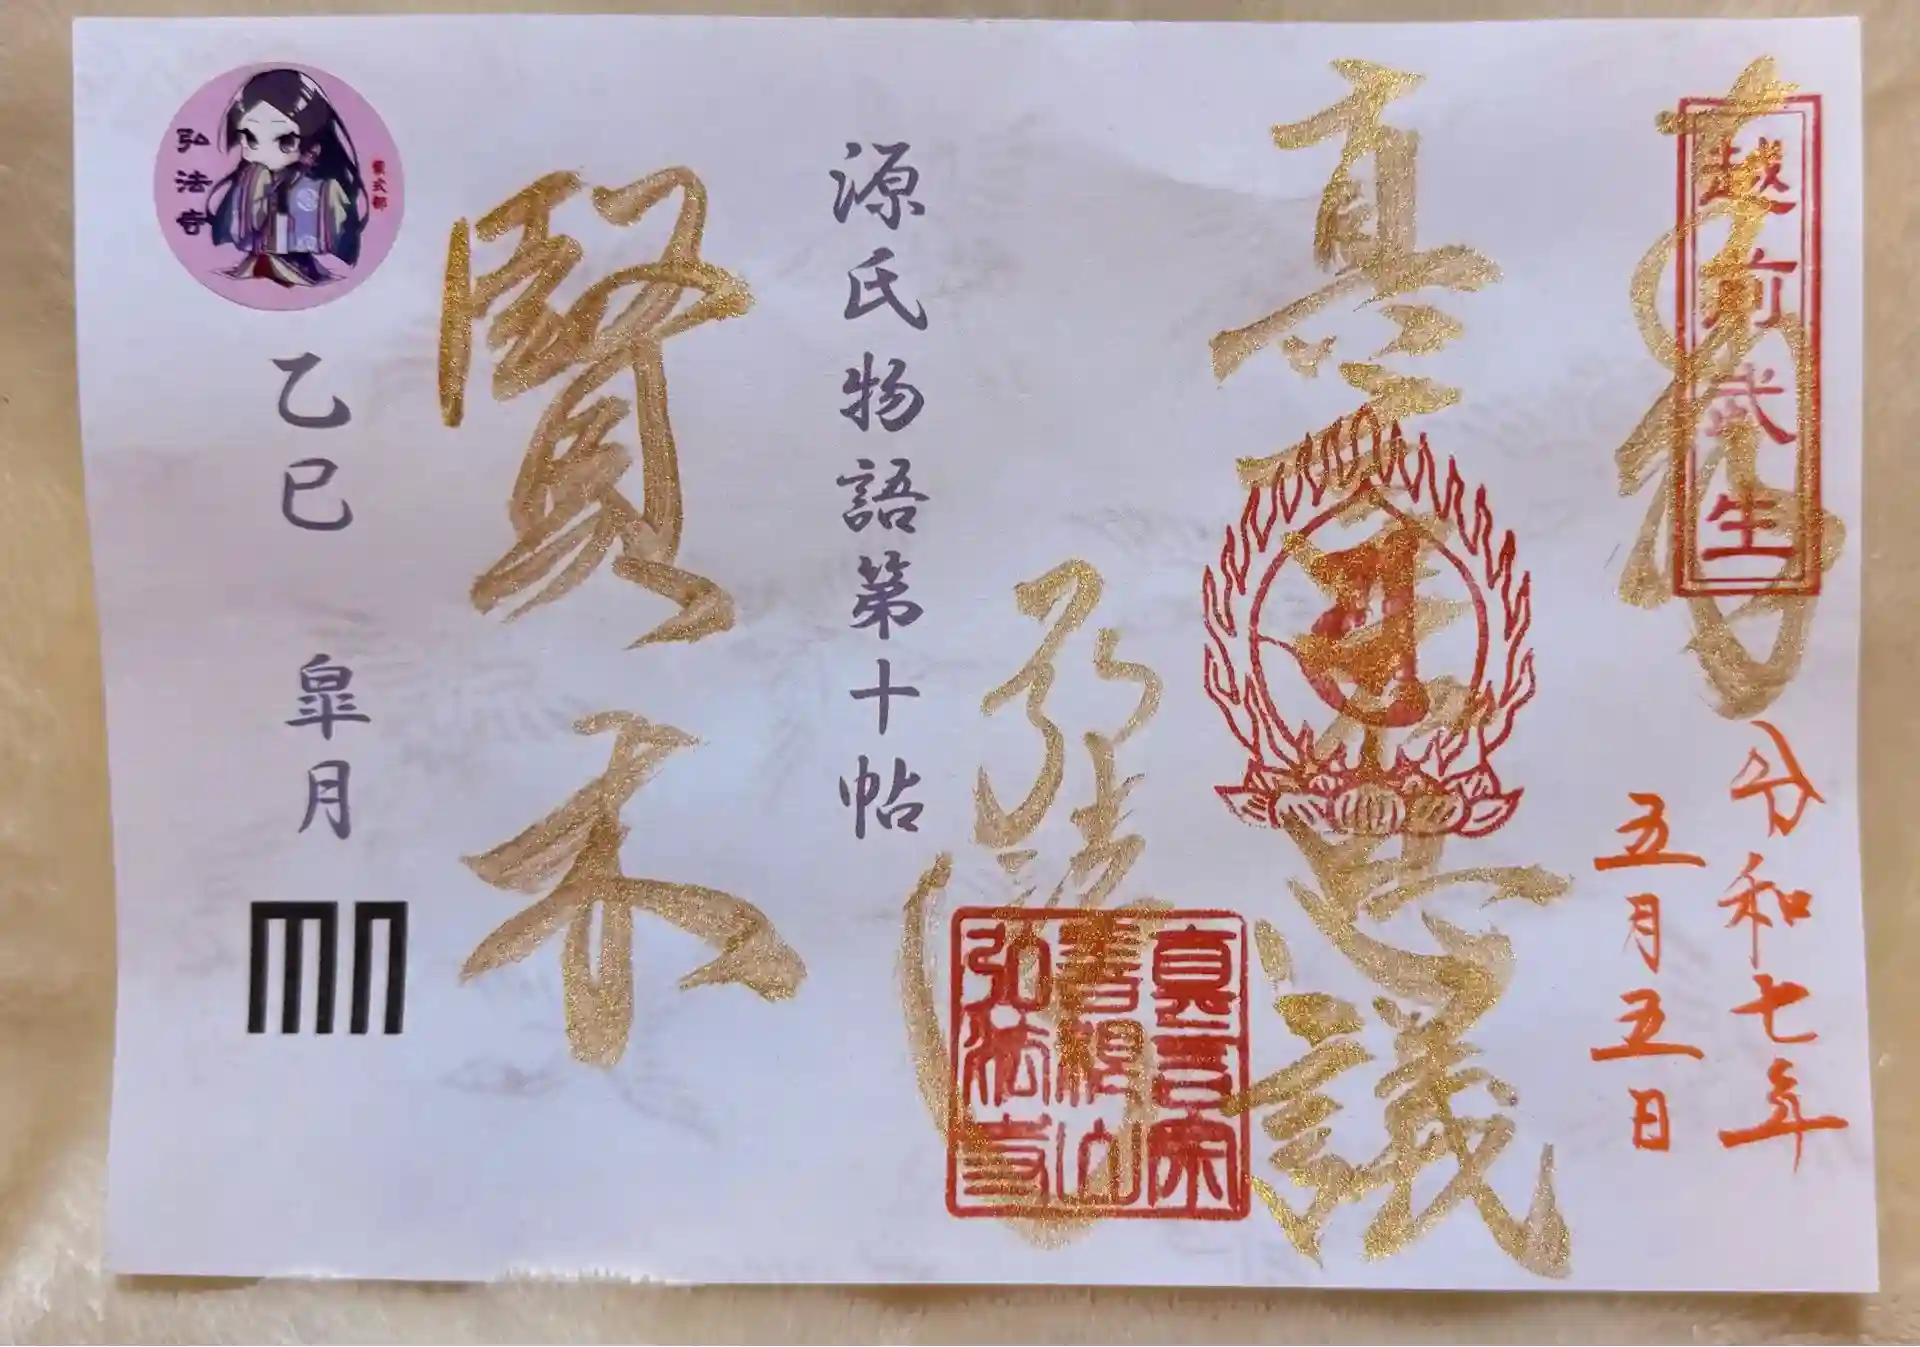 奉拝
越前武生
令和七年
五月五日
真言不思議
弘法寺
真言宗
善根山
弘法寺
源氏物語第十帖
賢木
弘法寺
紫式部
乙巳 皐月